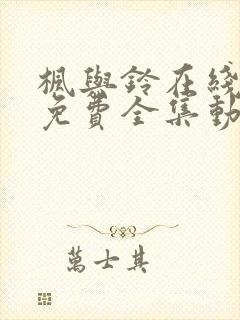 楓與鈴在綫
免費全集動
萬士其